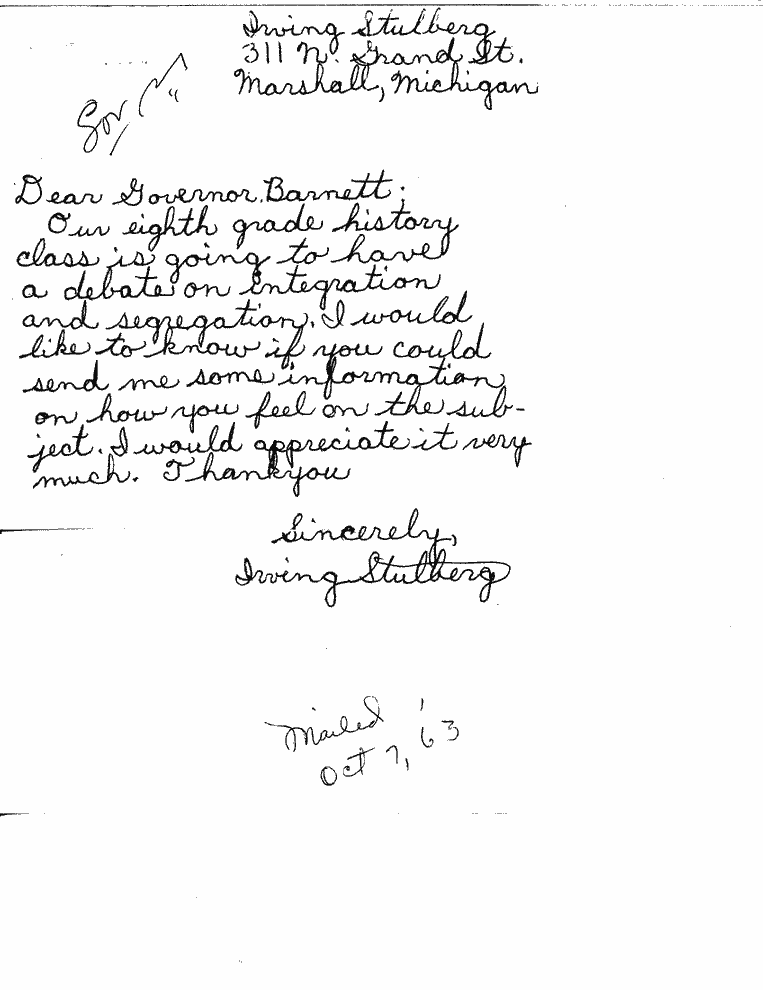 Irving Stulberg
311 N. Grand St.
Marshall, Michigan
Gov
Dear Governor Barnett:
Our eighth grade history
class is going to have
a debate on integration
and segregation. I would
like to know if you could
send me some information
on how you feel on the sub-
ject. I would appreciate it very
much. Thankyou
Sincerely,
Irving Stulberg
Mailed
Oct 7, '63